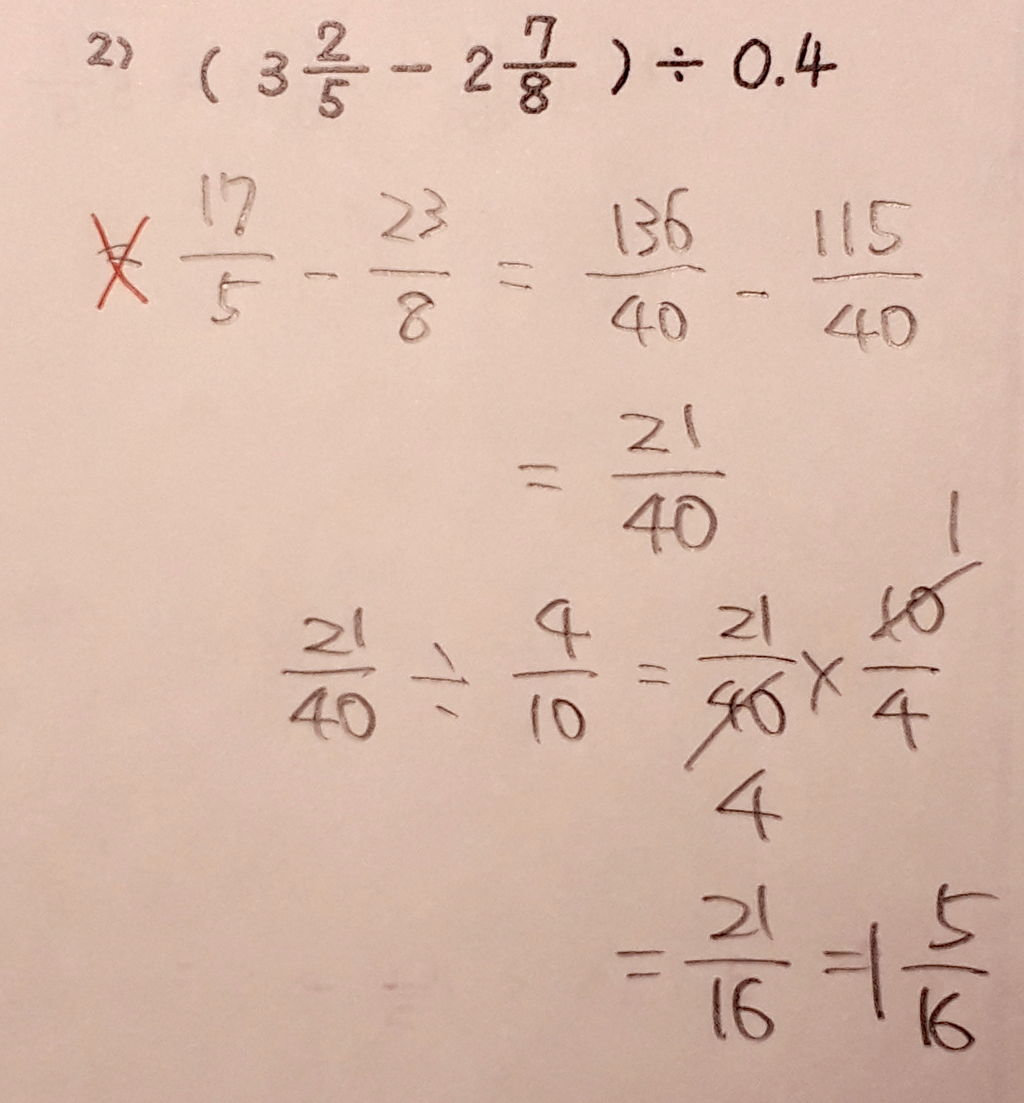 2) ( 3 2/5 − 2 7/8 ) ÷ 0.4
= 17/5 − 23/8 = 136/40 − 115/40
= 21/40
21/40 ÷ 4/10 = 21/40 × 10/4
1
4
= 21/16 = 1 5/16